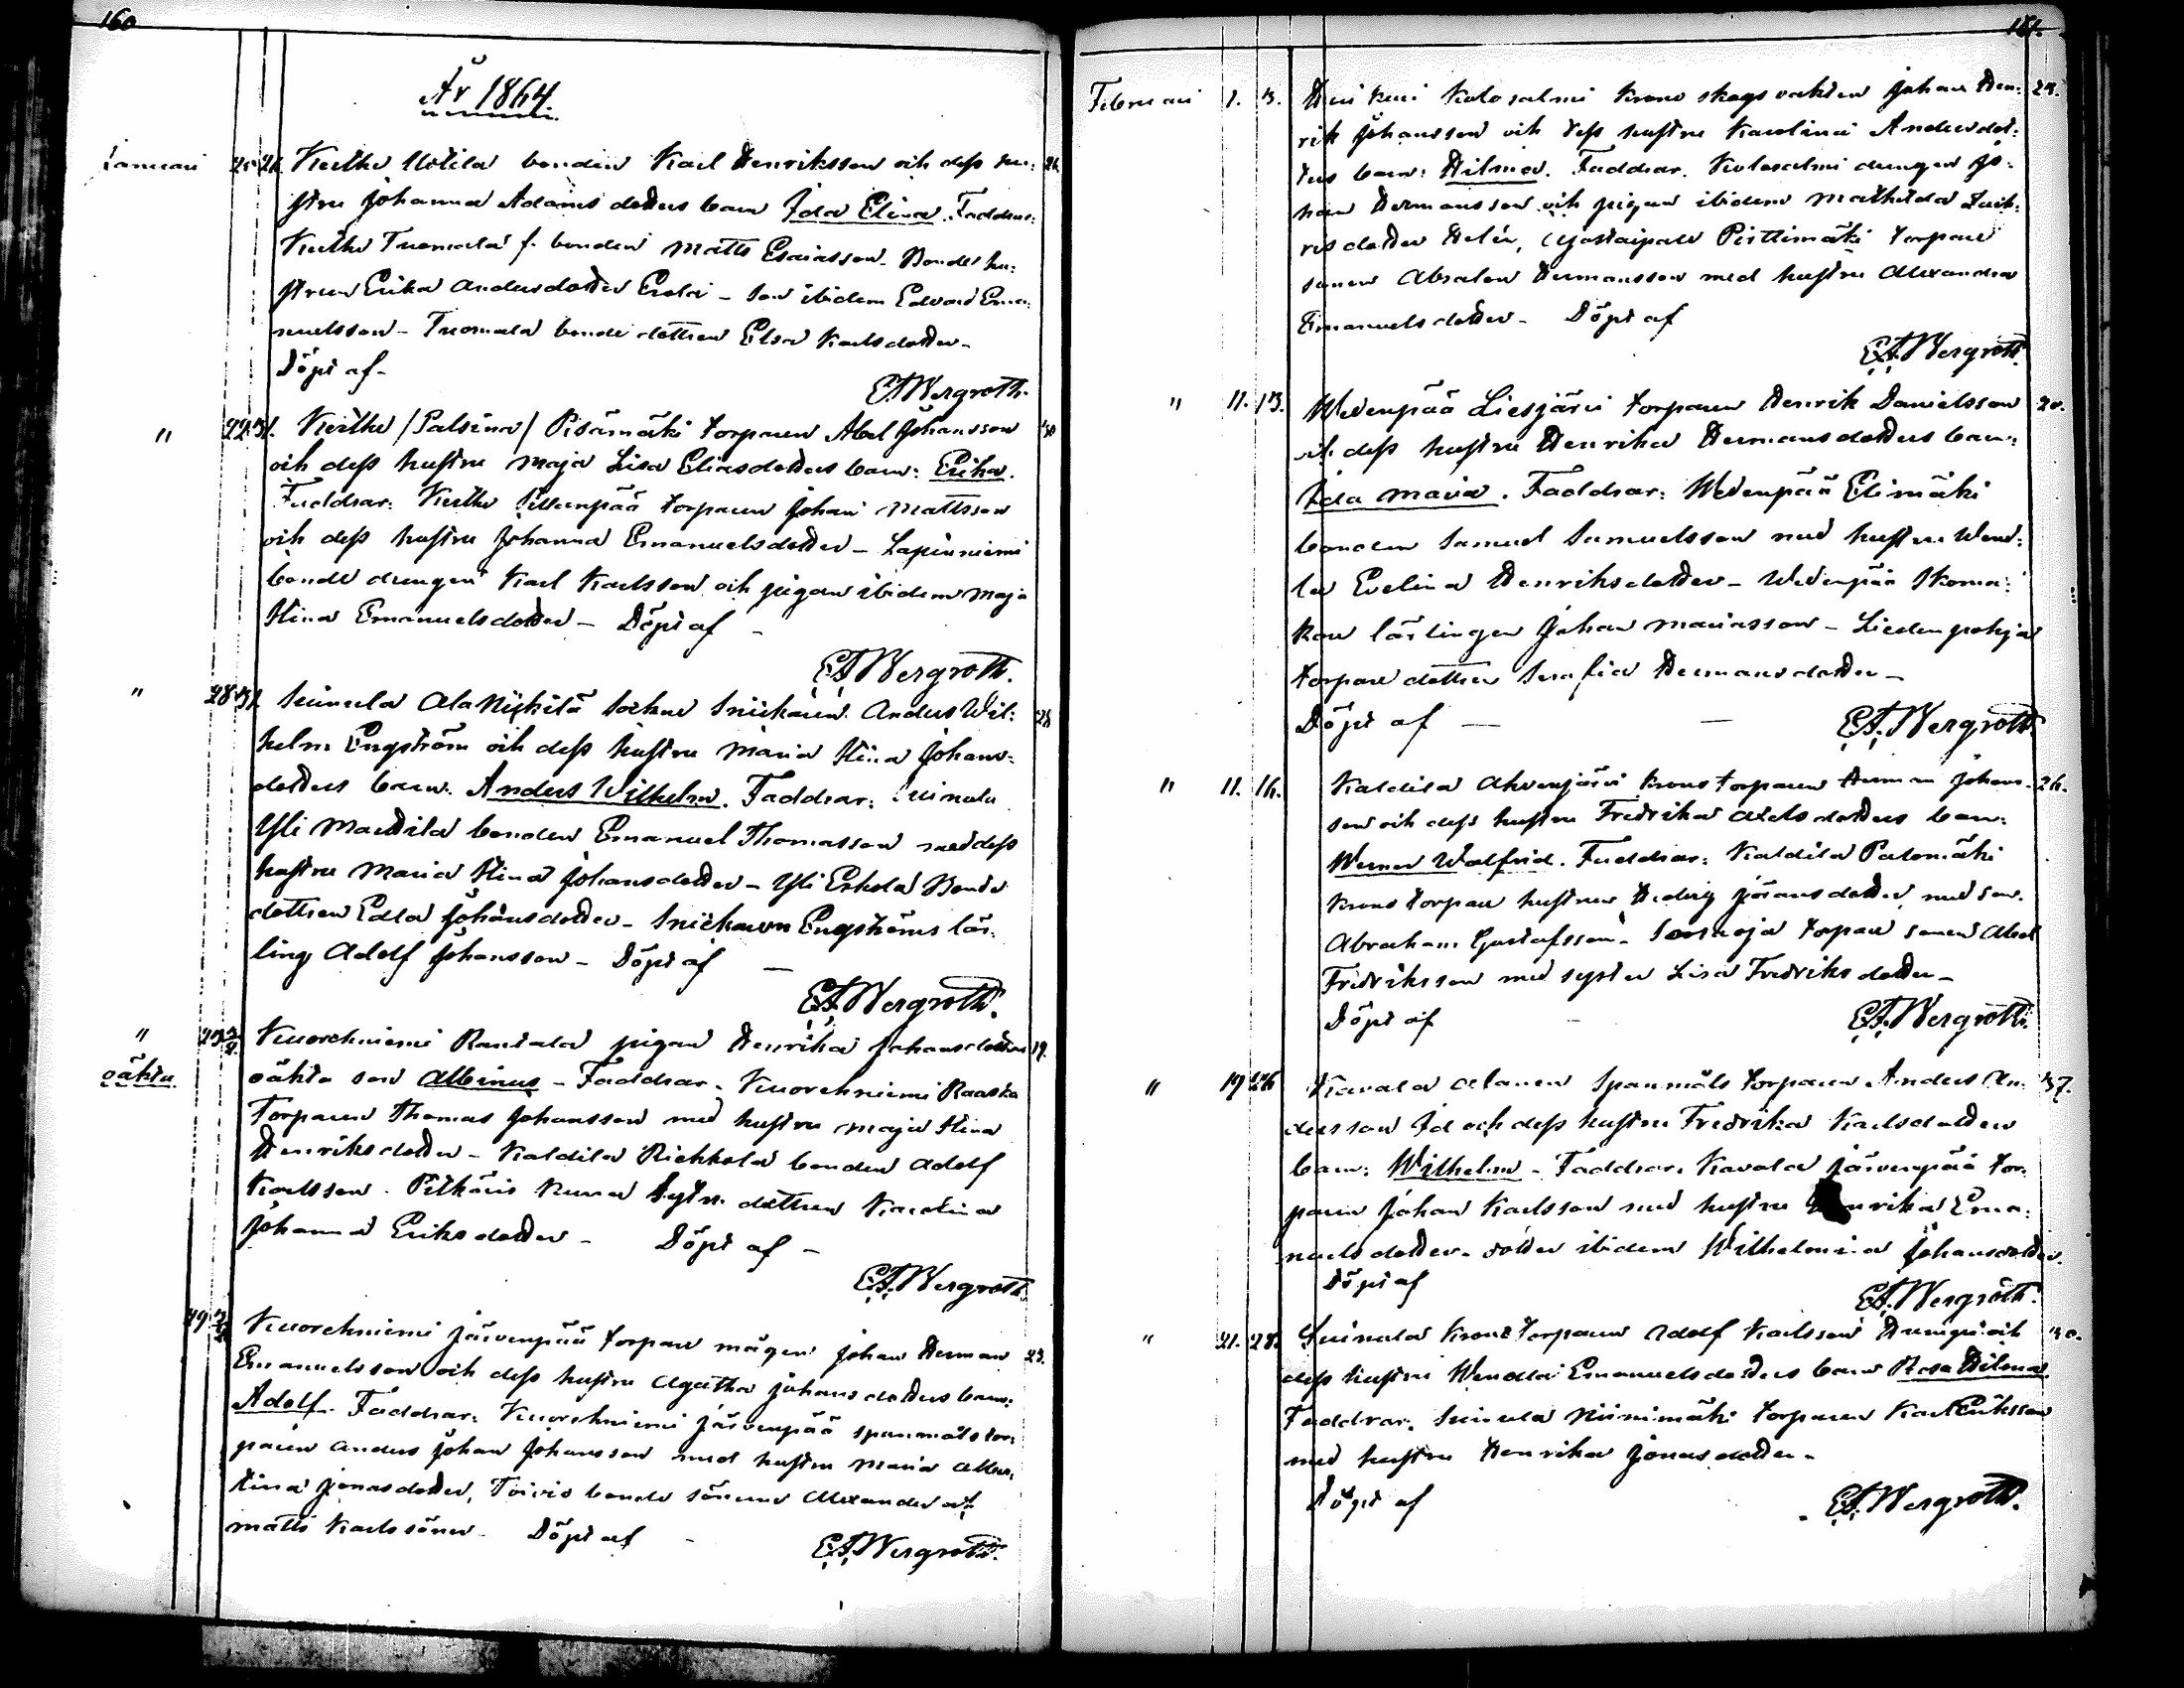 160
År 1864.
Januari 25. 26. Keitho Uotila bonden Karl Henriksson och dess hu: 26.
stru Johanna Adams dotters barn Ida Elina. Faddrar:
Keitho Tuomala f. bonden Matts Esaiasson. Bonde hu:
strun Erika Andersdotter Erola - son ibidem Edvard Ema:
nuelsson - Tuomala bonde dottren Elsa Karlsdotter -
Döpt af -
E.A. Wergroth.
" 22. 31. Keitho /Palsina/ Pisämäki torparen Abel Johansson 30
och dess hustru Maja Lisa Eliasdotters barn: Erika.
Faddrar: Keitho torparen Johan Mattsson
och dess hustru Johanna Emanuelsdotter - Lapinniemi
bonde drengen Karl Karlsson och pigan ibidem Maja
Stina Emanuelsdotter - Döpt af -
E.A. Wergroth.
" 28. 31. Suinula Ala Nykilä socken Snickaren Anders Wil: 28
helm Engström och dess hustru Maria Stina Johans:
dotters barn: Anders Wilhelm. Faddrar: Suinula
Yli Marttila bonden Emanuel Thomasson med dess
hustru Maria Stina Johansdotter - Yli Erkola Bonde
dottren Edla Johansdotter - Snickaren Engströms lär:
ling Adolf Johansson - Döpt af -
E.A. Wergroth.
" Kuorehniemi Rantala pigan Henrika Johansdotters 19.
oäkta oäkta son Albinus - Faddrar: Kuorehniemi Raaska
Torparen Thomas Johansson med hustru Maja Stina
Henriksdotter - Kaltila Riekkola bonden Adolf
Karlsson. dottren Karolina
Johanna Eriksdotter - Döpt af -
E.A. Wergroth.
Kuorehniemi Järvenpää torpare mågen Johan Herman 23.
Emanuelsson och dess hustru Agatha Johansdotters barn:
Adolf. Faddrar: Kuorehniemi Järvenpää spanmåls tor:
paren Anders Johan Johansson med hustru Maria Alber:
tina Jonasdotter, Toivio bonde sönerne Alexander och
Matts Karlssöner - Döpt af -
E.A. Wergroth.
161.
Februari 7. 13. Kolosalmi krono skogsvakten Johan Hen: 24.
rik Johansson och dess hustru Karolina Andersdot:
ters barn: Hilma. Faddrar. Kolosalmi drengen Jo:
han Hermansson och pigan ibidem Mathilda
dotter Helin, Pirttimäki torpare
sonen Absalon Hermansson med hustru Alexandra
Emanuelsdotter - Döpt af
E.A. Wergroth.
" 11. 13. Wedenpää Liesjärvi torparen Henrik Danielsson 20.
och dess hustru Henrika Hermansdotters barn:
Ida Maria. Faddrar: Wedenpää Elimäki
bonden Samuel Samuelsson med hustru Wend:
la Evelina Henriksdotter - Wedenpää Skoma:
kare lärlingen Johan Mariasson - Liedenpohja
torpare dottren Serafia Hermansdotter -
Döpt af - - E.A. Wergroth.
" 11. 16. Kaltila Ahvenjärvi krono torparen Herman Johans- 26.
son och dess hustru Fredrika Axelsdotters barn:
Werner Walfrid. Faddrar: Kaltila Palomäki
krono torpare hustrun Hedvig Göransdotter, med son
Abraham Gustafsson - torpare sonen Abel
Fredriksson med syster Lisa Fredriksdotter -
Döpt af - E.A. Wergroth.
" 19. 26 Kavala Alanen Spanmåls torparen Anders An: 37.
dersson och dess hustru Fredrika Karlsdotters
barn: Wilhelm - Faddrar: Kavala Järvenpää tor:
paren Johan Karlsson med hustru Henrika Ema:
nuelsdotter - dotter ibidem Wilhelmina Johansdotter.
Döpt af
E.A. Wergroth.
" 21. 28. Suinula krono torparen Adolf Karlsson och 30.
dess hustru Wendla Emanuelsdotters barn Hilma
Faddrar: Suinula Niinimäki torparen Karl Eriksson
med hustru Henrika Jonasdotter -
Döpt af - E.A. Wergroth.